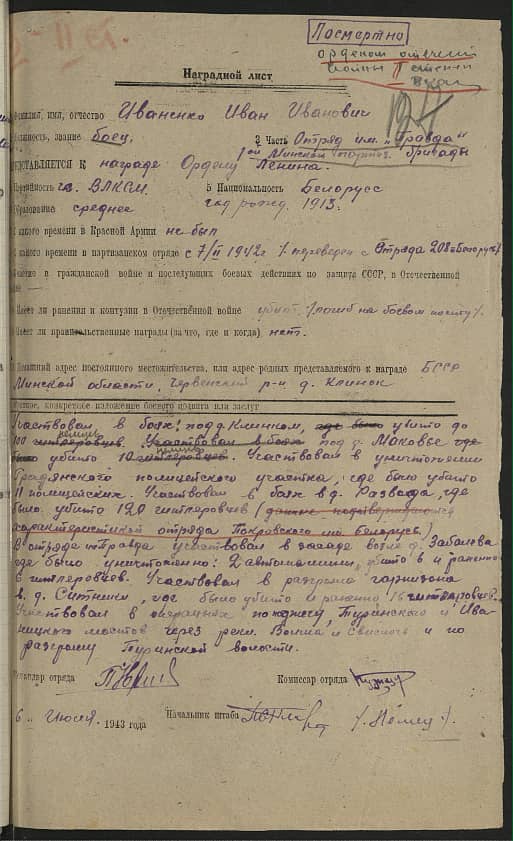 Посмертно
орденом отечест
войны II степени
Наградной лист
Фамилия, имя, отчество Иваненко Иван Иванович
должность, звание боец. 3 Часть Отряд им. "Правда"
1ой Минской бригады
ПРЕДСТАВЛЯЕТСЯ К награде Ордену Ленина.
Партийность чл. ВЛКСМ. 5 Национальность Белорусс
Образование среднее год рожд. 1913.
С какого времени в Красной Армии не был
С какого времени в партизанском отряде с 7/II 1942г /. переведен с Отряда 208
Участие в гражданской войне и последующих боевых действиях по защите СССР, в Отечественной
войне —
Имеет ли ранения и контузии в Отечественной войне убит /погиб на боевом посту/.
Имеет ли правительственные награды (за что, где и когда) нет.
Домашний адрес постоянного местожительства, или адрес родных представляемого к награде БССР
Минской области, Червенский р-н д. Клинок
Краткое, конкретное изложение боевого подвига или заслуг
Участвовал в боях: под д. Клинком, где было убито до
100 гитлеровцев. немцев Участвовал в боях под д. Маковье где
было убито 10 гитлеровцев. немцев Участвовал в уничтожении
Градянского полицейского участка, где было убито
11 полицейских. Участвовал в боях в д. Развада, где
было убито 120 гитлеровцев (данные подтверждаются
характеристикой отряда Покровского из Белоруси)
В отряде "Правда" участвовал в засаде возле д. Забалева
где было уничтожено: 2 автомашины, убито 4 и ранено
6 гитлеровцев. Участвовал в разгроме гарнизона
в д. Ситники, где было убито и ранено 16 гитлеровцев.
Участвовал в операциях по Туринского и Ива-
ницкого мостов через реки Волма и Свислочь и по
разгрому Туринской волости.
Командир отряда Комиссар отряда
6 " Июля 1943 года Начальник штаба /Немец/.